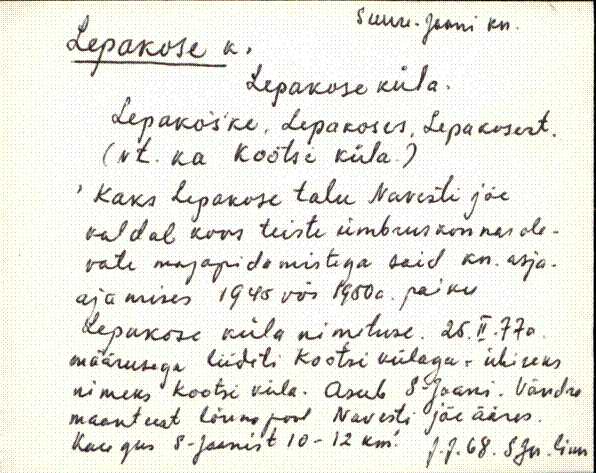 Suure-Jaani kn.
Lepakose k.
Lepakose küla.
Lepakos'ke, Lepakoses, Lepakosest.
(vt. ka Kootsi küla.)
Kaks Lepakose talu Navesti jõe
kaldal koos teiste ümbruskonnas ole-
vate majapidamistega said kn. asja-
ajamises 1945 või 1950a. paiku
Lepakose küla nimetuse. 25.II.77a.
määrusega liideti Kootsi külaga - ühiseks
nimeks Kootsi küla. Asub S-Jaani - Vändra
maanteest lõuna pool Navesti jõe ääres.
Kaugus S-Jaanist 10-12 km.
J.J. 68. S.Jn.